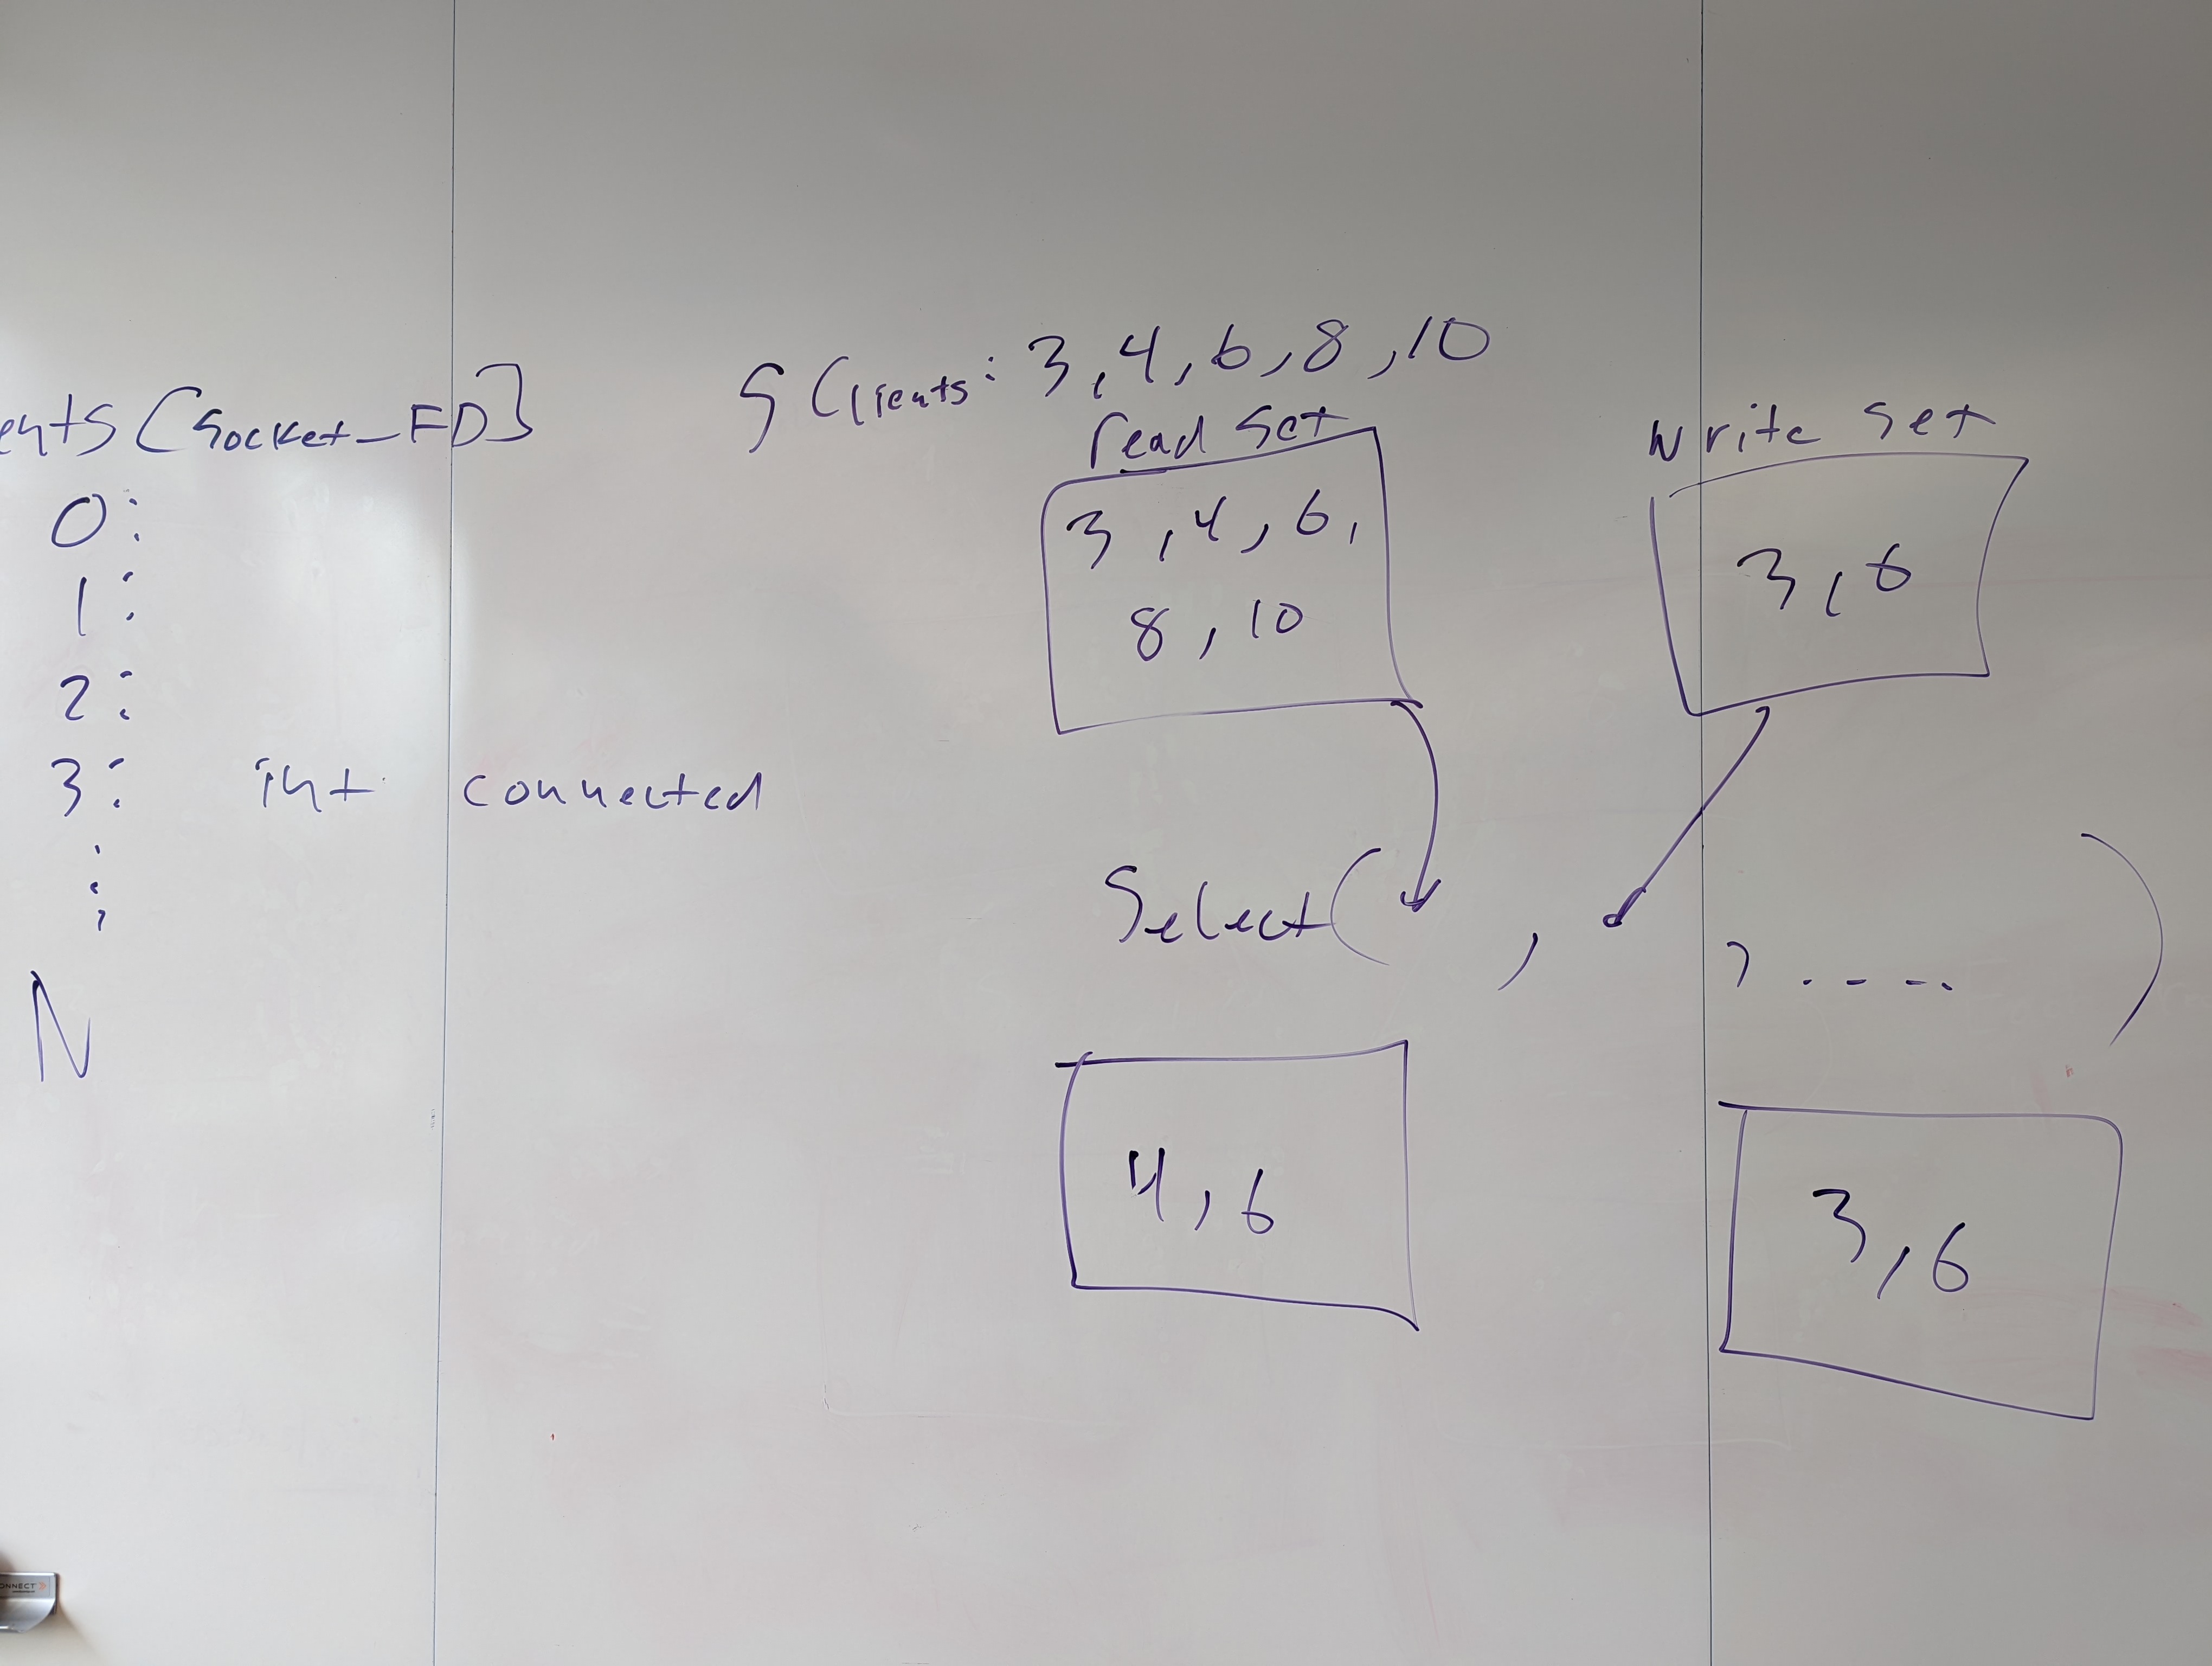 ents[Socket_FD]
0:
1:
2:
3: int connected
N
5 Clients: 3, 4, 6, 8, 10
read set
3, 4, 6,
8, 10
write set
3, 6
Select( , , ....)
4, 6
3, 6
ONNECT